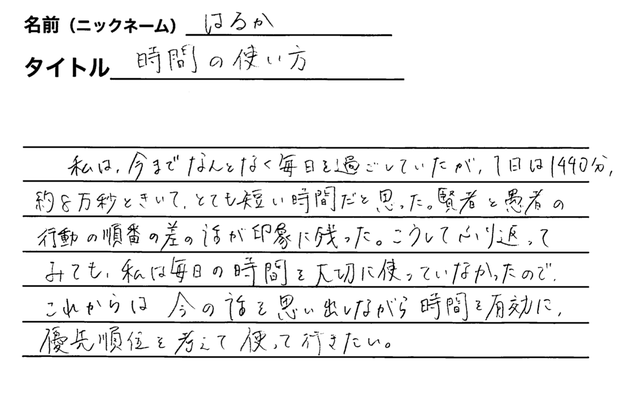 名前（ニックネーム） はるか
タイトル 時間の使い方
私は、今までなんとなく毎日を過ごしていたが、1日は1440分、
約8万秒ときいて、とても短い時間だと思った。賢者と愚者の
行動の順番の差の話が印象に残った。こうしてふり返って
みても、私は毎日の時間を大切に使っていなかったので、
これからは今の話を思い出しながら時間を有効に、
優先順位を考えて使って行きたい。